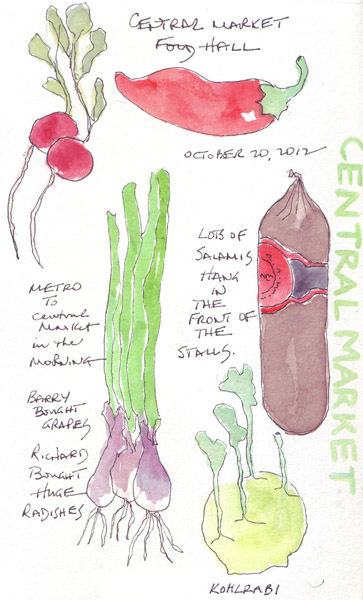 CENTRAL MARKET
FOOD HALL
OCTOBER 20, 2012
CENTRAL MARKET
LOTS OF
SALAMIS
HANG
IN
THE
FRONT OF
THE
STALLS.
METRO
TO
central
MARKET
in the
MORNING
BARRY
BOUGHT
GRAPES
RICHARD
BOUGHT
HUGE
RADISHES
KOHLRABI